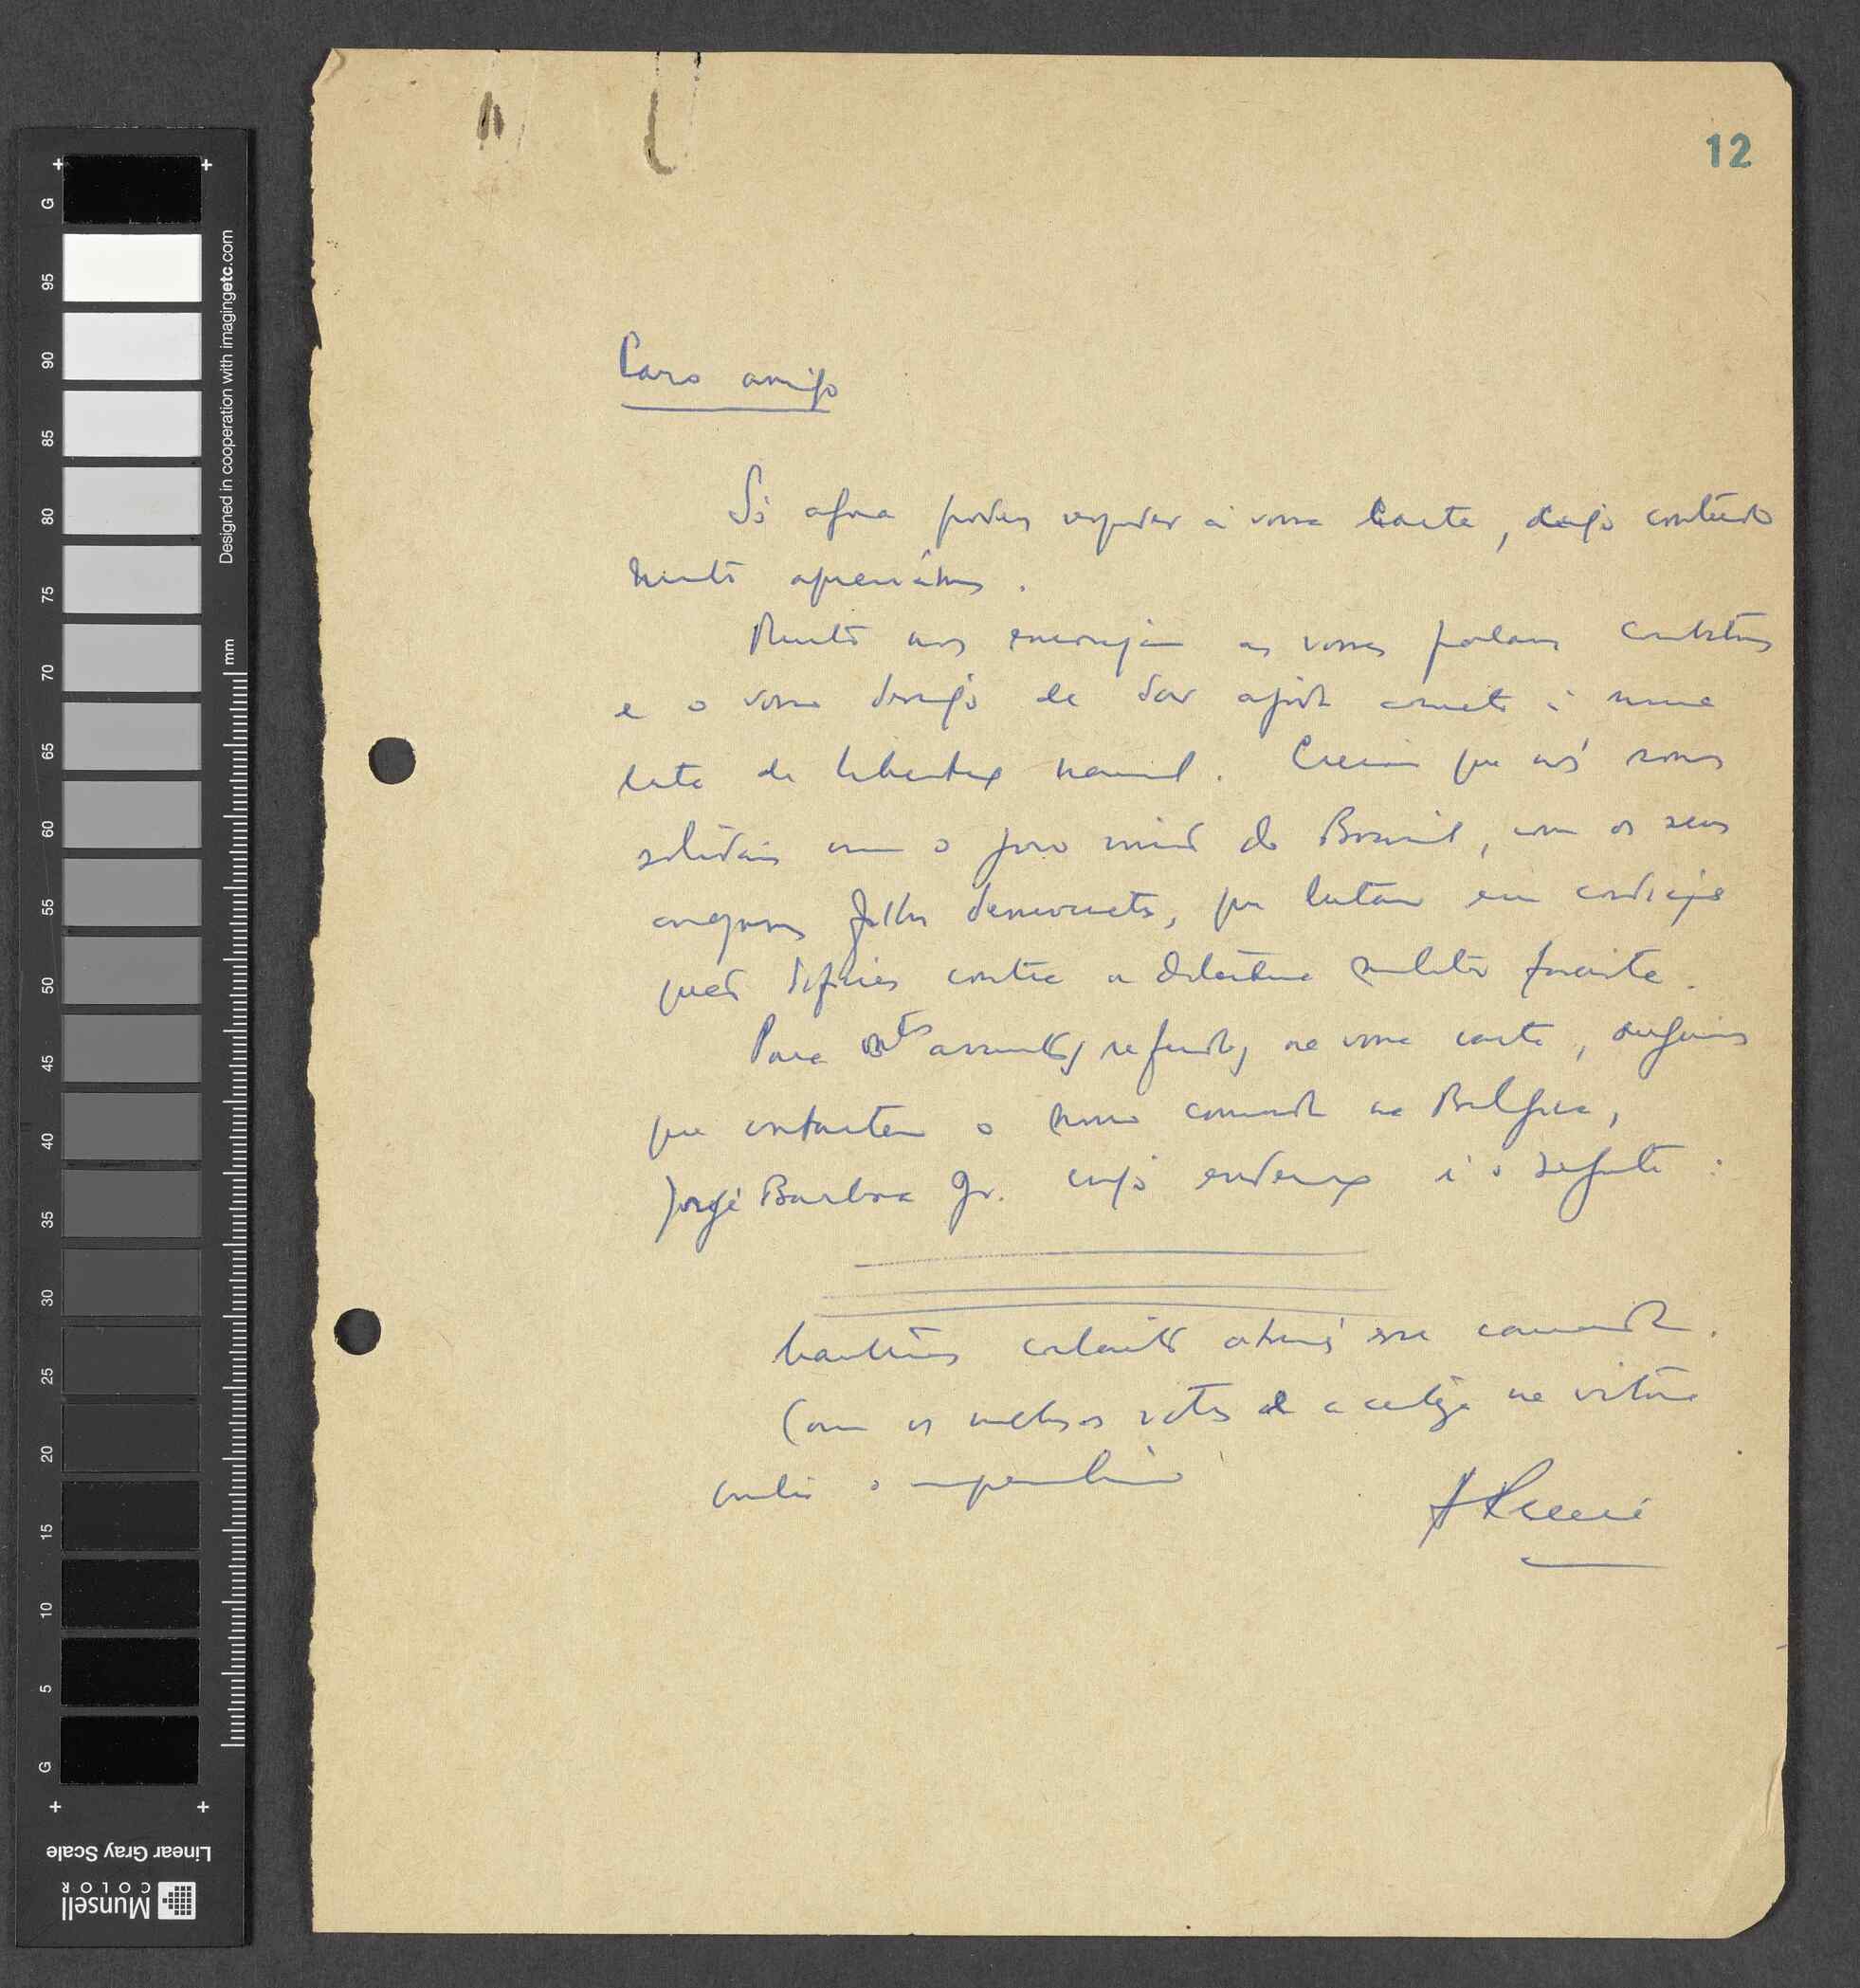 12
Caro amigo
Só agora podemos responder à vossa carta, cujo conteúdo
muito apreciámos.
Muito nos encorajam as vossas palavras
e o vosso desejo de dar ajuda concreta à nossa
luta de libertação nacional. que nós somos
solidários com o povo irmão do Brasil, com os seus
corajosos filhos democratas, que lutam em condições
difíceis contra a ditadura militar fascista.
Para estes assuntos, referidos na vossa carta,
que contactem o nosso camarada na Bélgica,
Jorge Barbosa Jr. cujo endereço é o seguinte:
contacto através esse camarada.
Com os melhores votos e a certeza na vitória
contra o imperialismo
G
95
90
85
80
75
70
65
60
55
50
45
40
35
30
25
20
15
10
5
G
Designed in cooperation with imagingetc.com
mm
Linear Gray Scale
Munsell
COLOR